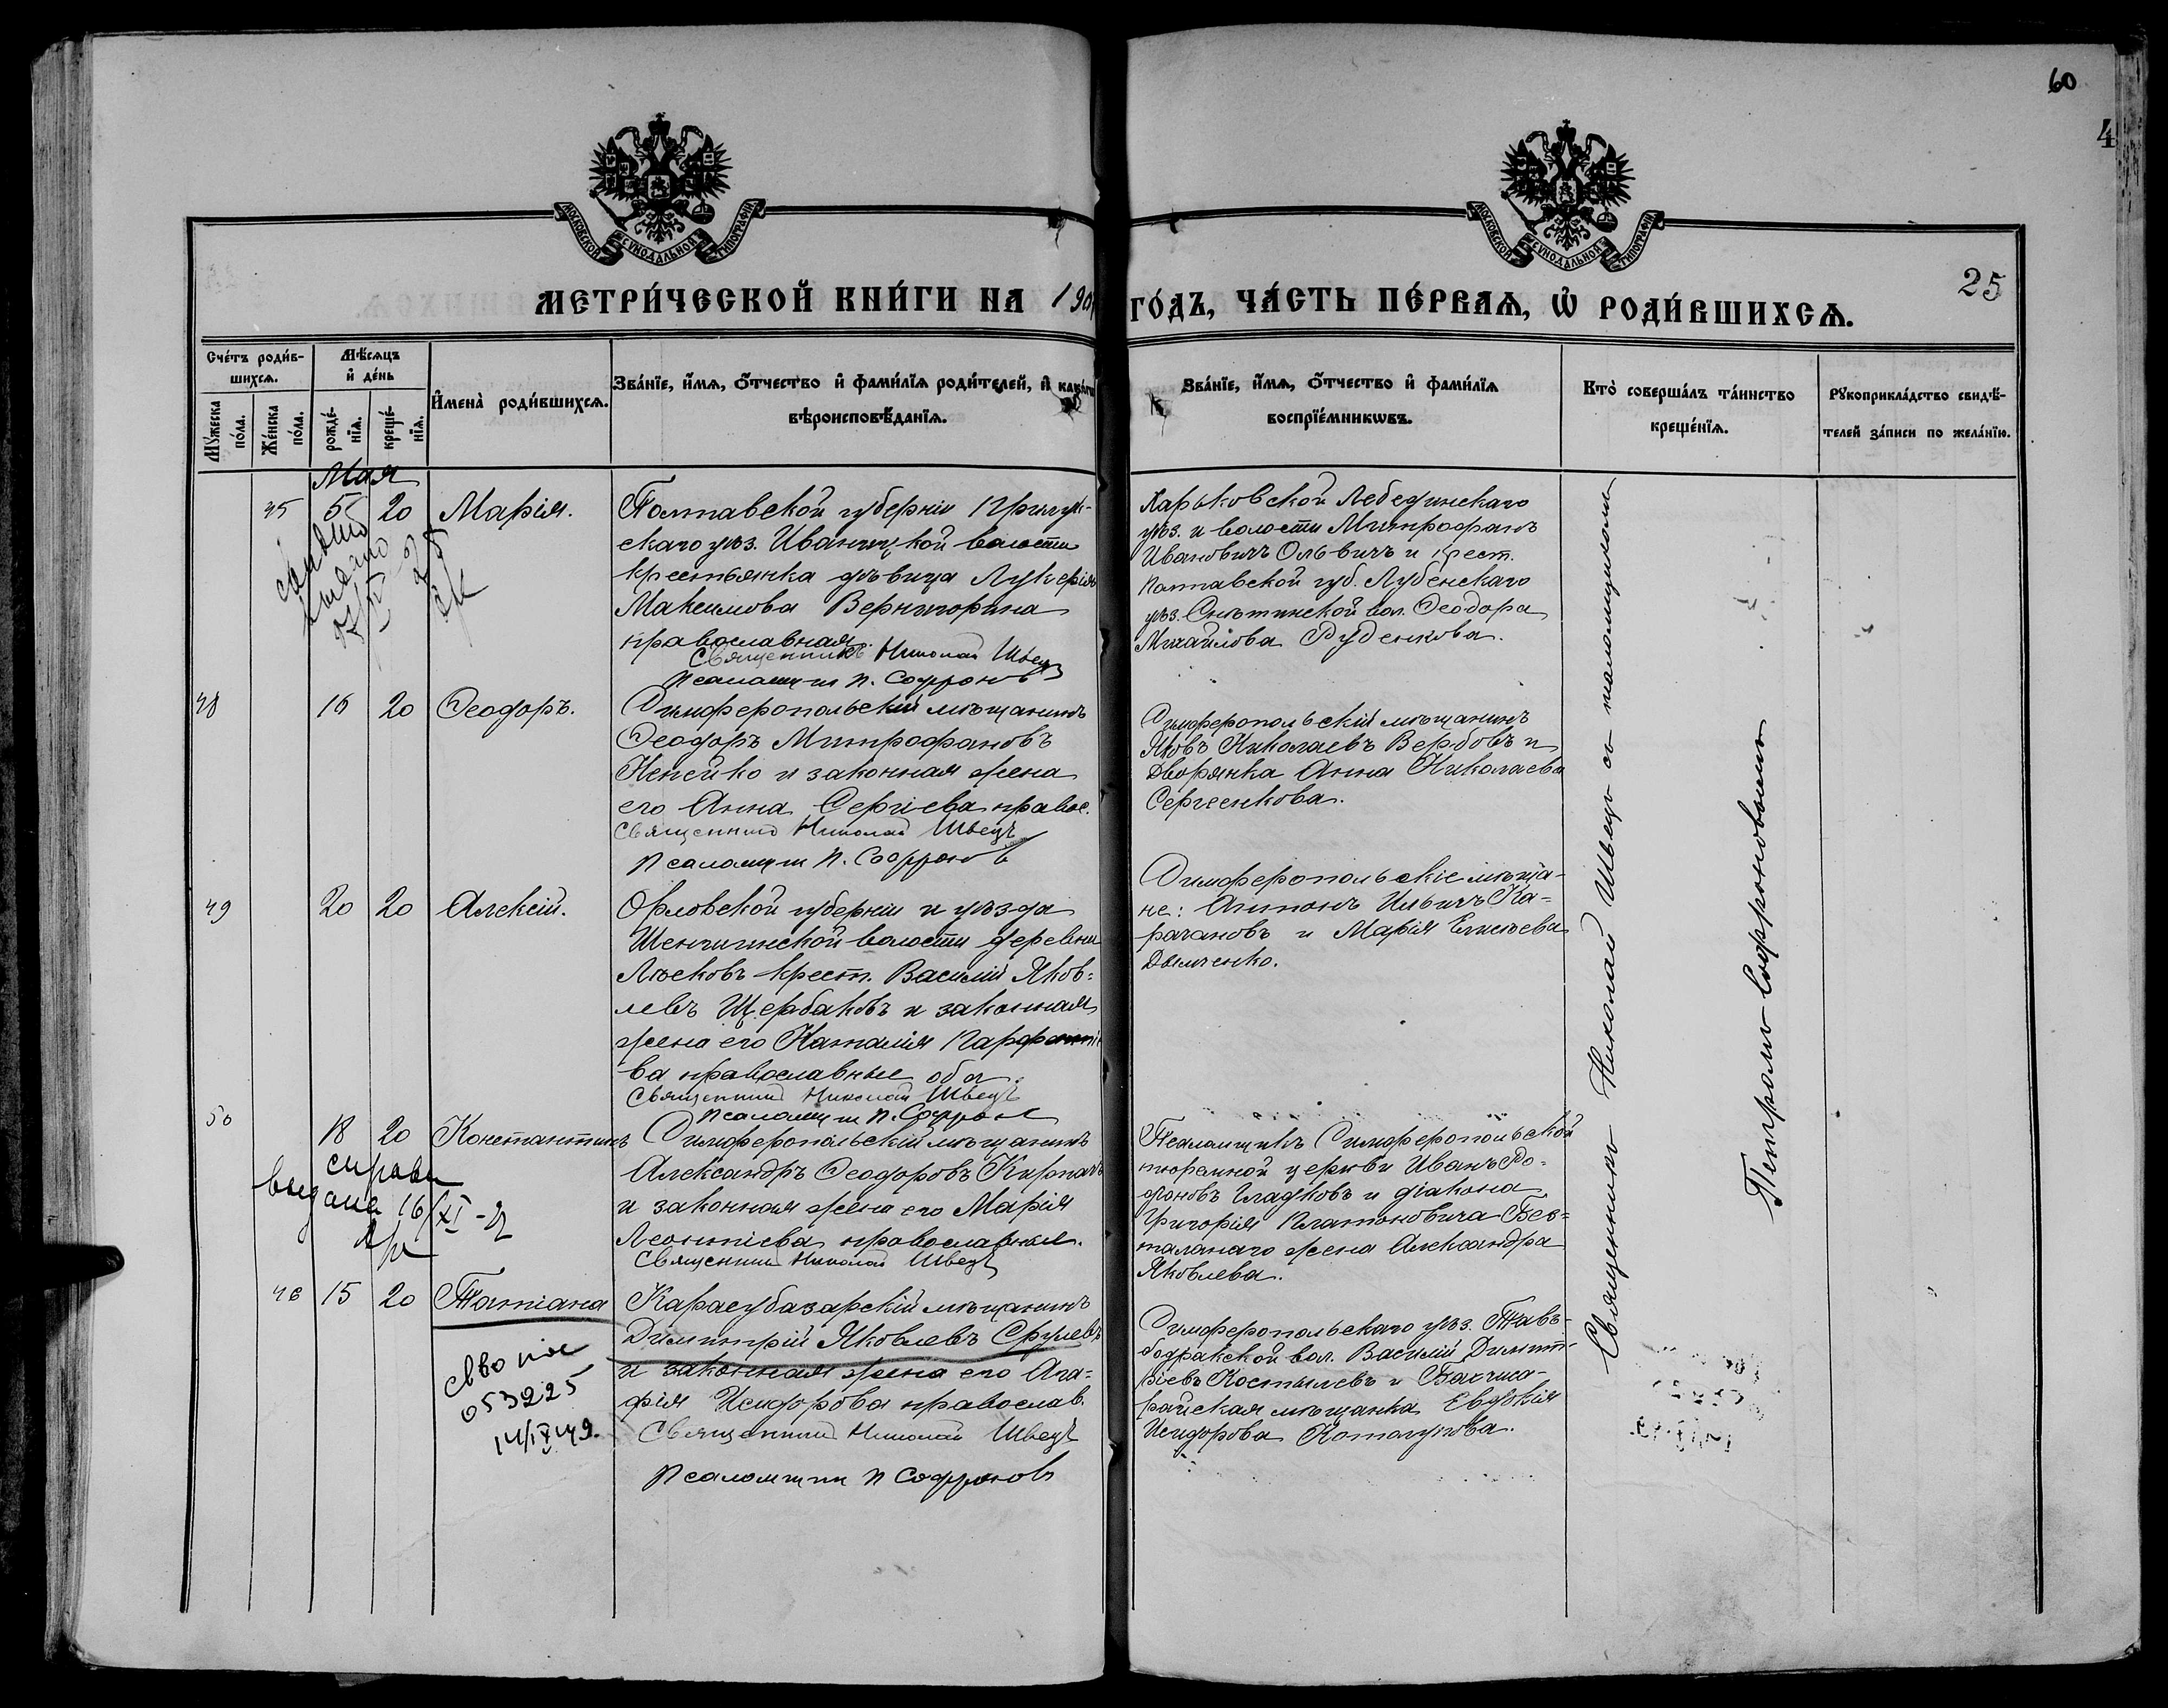 60
4
25
МОСКОВСКОЙ СѴНОДАЛЬНОЙ ТИПОГРАФІИ
МОСКОВСКОЙ СѴНОДАЛЬНОЙ ТИПОГРАФІИ
МЕТРИ́ЧЕСКОЙ КНИ́ГИ НА 190
ГО́ДЪ, ЧА́СТЬ ПЕ́РВАѦ, Ѡ РОДИ́ВШИХСѦ.
Сче́тъ роди́в-
шихсѧ.
Мꙋ́жеска
по́ла.
Же́нска
по́ла.
Мѣ́сѧцъ
и҆ де́нь
рожде́-
нїѧ.
креще́-
нїѧ.
И҆мена̀ роди́вшихсѧ.
Зва́нїе, и҆́мѧ, ѻ҆́тчество и҆ фами́лїѧ роди́телей, и҆
вѣроисповѣ́данїѧ.
Зва́нїе, и҆́мѧ, ѻ҆́тчество и҆ фами́лїѧ
воспрїе́мникωвъ.
Кто̀ соверша́лъ та́инство
креще́нїѧ.
Рꙋкоприкла́дство свидѣ́-
телей за́писи по жела́нїю.
Мая
45 5 20 Марія.
Полтавской губерніи Прилук-
скаго уѣз. Иваницкой волости
крестьянка дѣвица Лукерія
Максимова Вернигорина
православная.
Священникъ Николай Швецъ
Псаломщик П. Софронов
Харьковской Лебединскаго
уѣз. и волости Митрофанъ
Ивановичъ Ольвичъ и крест.
Полтавской губ. Лубенскаго
уѣз. Снѣтинской вол. Ѳеодора
Михайлова Руденкова.
48 16 20 Ѳеодоръ.
Симферопольскій мѣщанинъ
Ѳеодоръ Митрофановъ
Непейко и законная жена
его Анна Сергіева правос.
Священник Николай Швецъ
Псаломщик П. Софронов
Симферопольскій мѣщанинъ
Яковъ Николаевъ Вербовъ и
Дворянка Анна Николаева
Сергеенкова.
49 20 20 Алексій.
Орловской губерніи и уѣзда
волости деревни
Лѣсковъ крест. Василій Яков-
левъ Щербаковъ и законная
жена его Наталія
ва православные оба.
Священник Николай Швецъ
Псаломщик П. Софронов
Симферопольскіе мѣща-
не: Антонъ Ильичъ Ка-
рачановъ и Марія Елисѣева
Дьяченко.
50 18 20 Константинъ
справка
выдана 16/XI-
Симферопольскій мѣщанинъ
Александръ Ѳеодоровъ Кирпачъ
и законная жена его Марія
Леонтіева православные.
Священник Николай Швецъ
Псаломщикъ Симферопольской
тюремной церкви Иванъ
Гладковъ и діакона
Григорія Платоновича Без-
таланаго жена Александра
Яковлева.
46 15 20 Татіана
053225
14/IX 49.
Карасубазарскій мѣщанинъ
Димитрій Яковлевъ Срулевъ
и законная жена его Ага-
фія Исидорова православ.
Священник Николай Швецъ
Псаломщик П Софронов
Симферопольскаго уѣз. Тавъ-
бодракской вол. Василій Димит-
ріевъ Костылевъ и Бахчиса-
райская мѣщанка Евдокія
Исидорова
Священникъ Николай Швецъ съ псаломщикомъ
Петромъ Софроновымъ